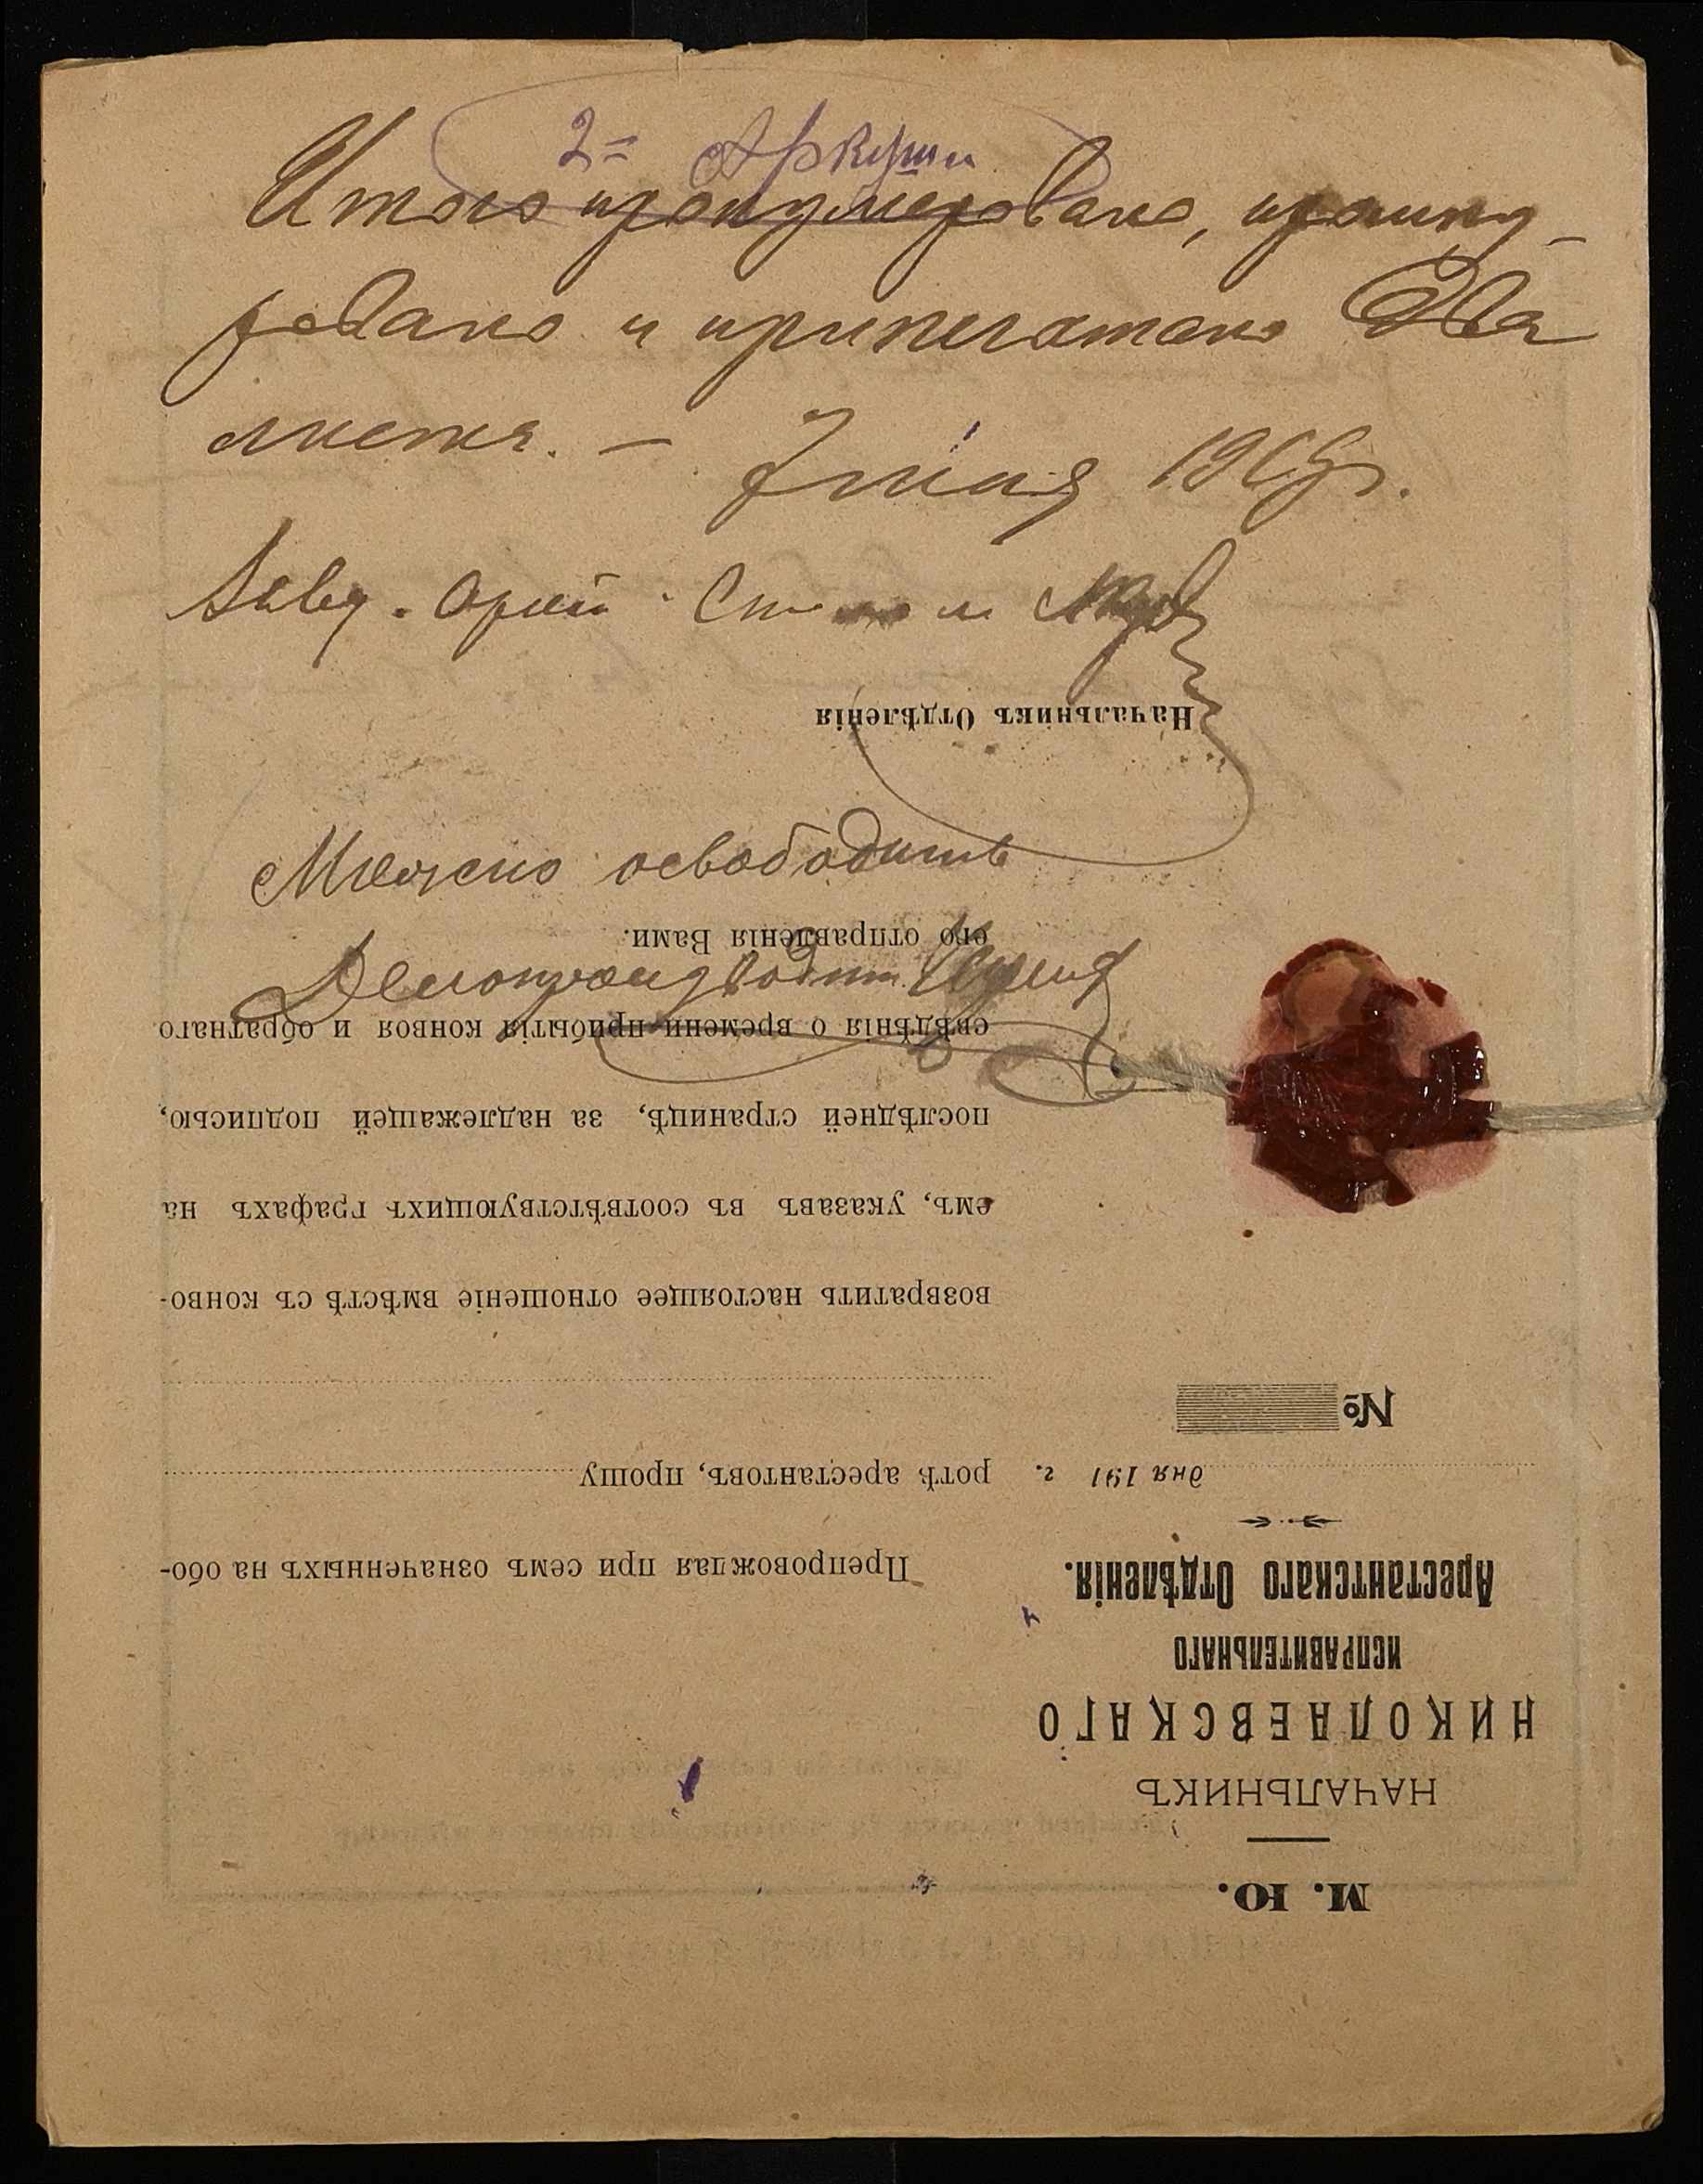 2= Аркуши
Итого пронумеровано, прошну-
ровано и припечатано два
листа. —
Июня
Завед. Арест.
Можно освободить
М. Ю.
НАЧАЛЬНИКЪ
НИКОЛАЕВСКАГО
ИСПРАВИТЕЛЬНАГО
Арестантскаго Отдѣленія.
дня 191 г.
№
Препровождая при семъ означенныхъ на обо-
ротѣ арестантовъ, прошу
возвратить настоящее отношеніе вмѣстѣ съ конво-
емъ, указавъ въ соотвѣтствующихъ графахъ на
послѣдней страницѣ, за надлежащей подписью,
свѣдѣнія о времени прибытія конвоя и обратнаго
его отправленія Вами.
Начальникъ Отдѣленія